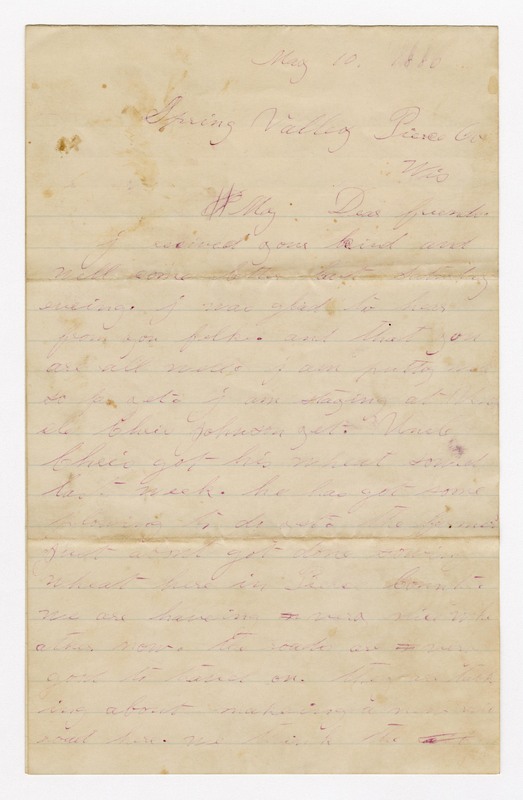 May 10. 1886
Spring Valley Pierce Co
Wis
My Dear friends
I reseived your kind and
well come letter last Saturday
eveing. I was glad to hear
from you folks. and that you
are all well. I am pretty well
so far yet. I am staying at
Chris Johnson yet. Uncle
Chris got his wheat sowed
last week. he has got some
to do yet. the
just about got done sowing
wheat here in Pierce County
we are haveing a very nice
ather now. the roads are very
good to travel on. they are talk
ing about makeing a new
road here. we think the